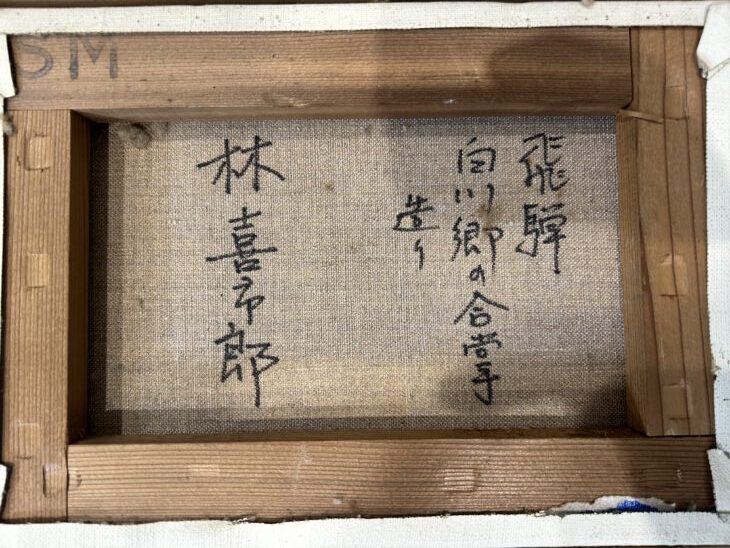 SM
飛騨
白川郷の合掌
造り
林 喜市郎